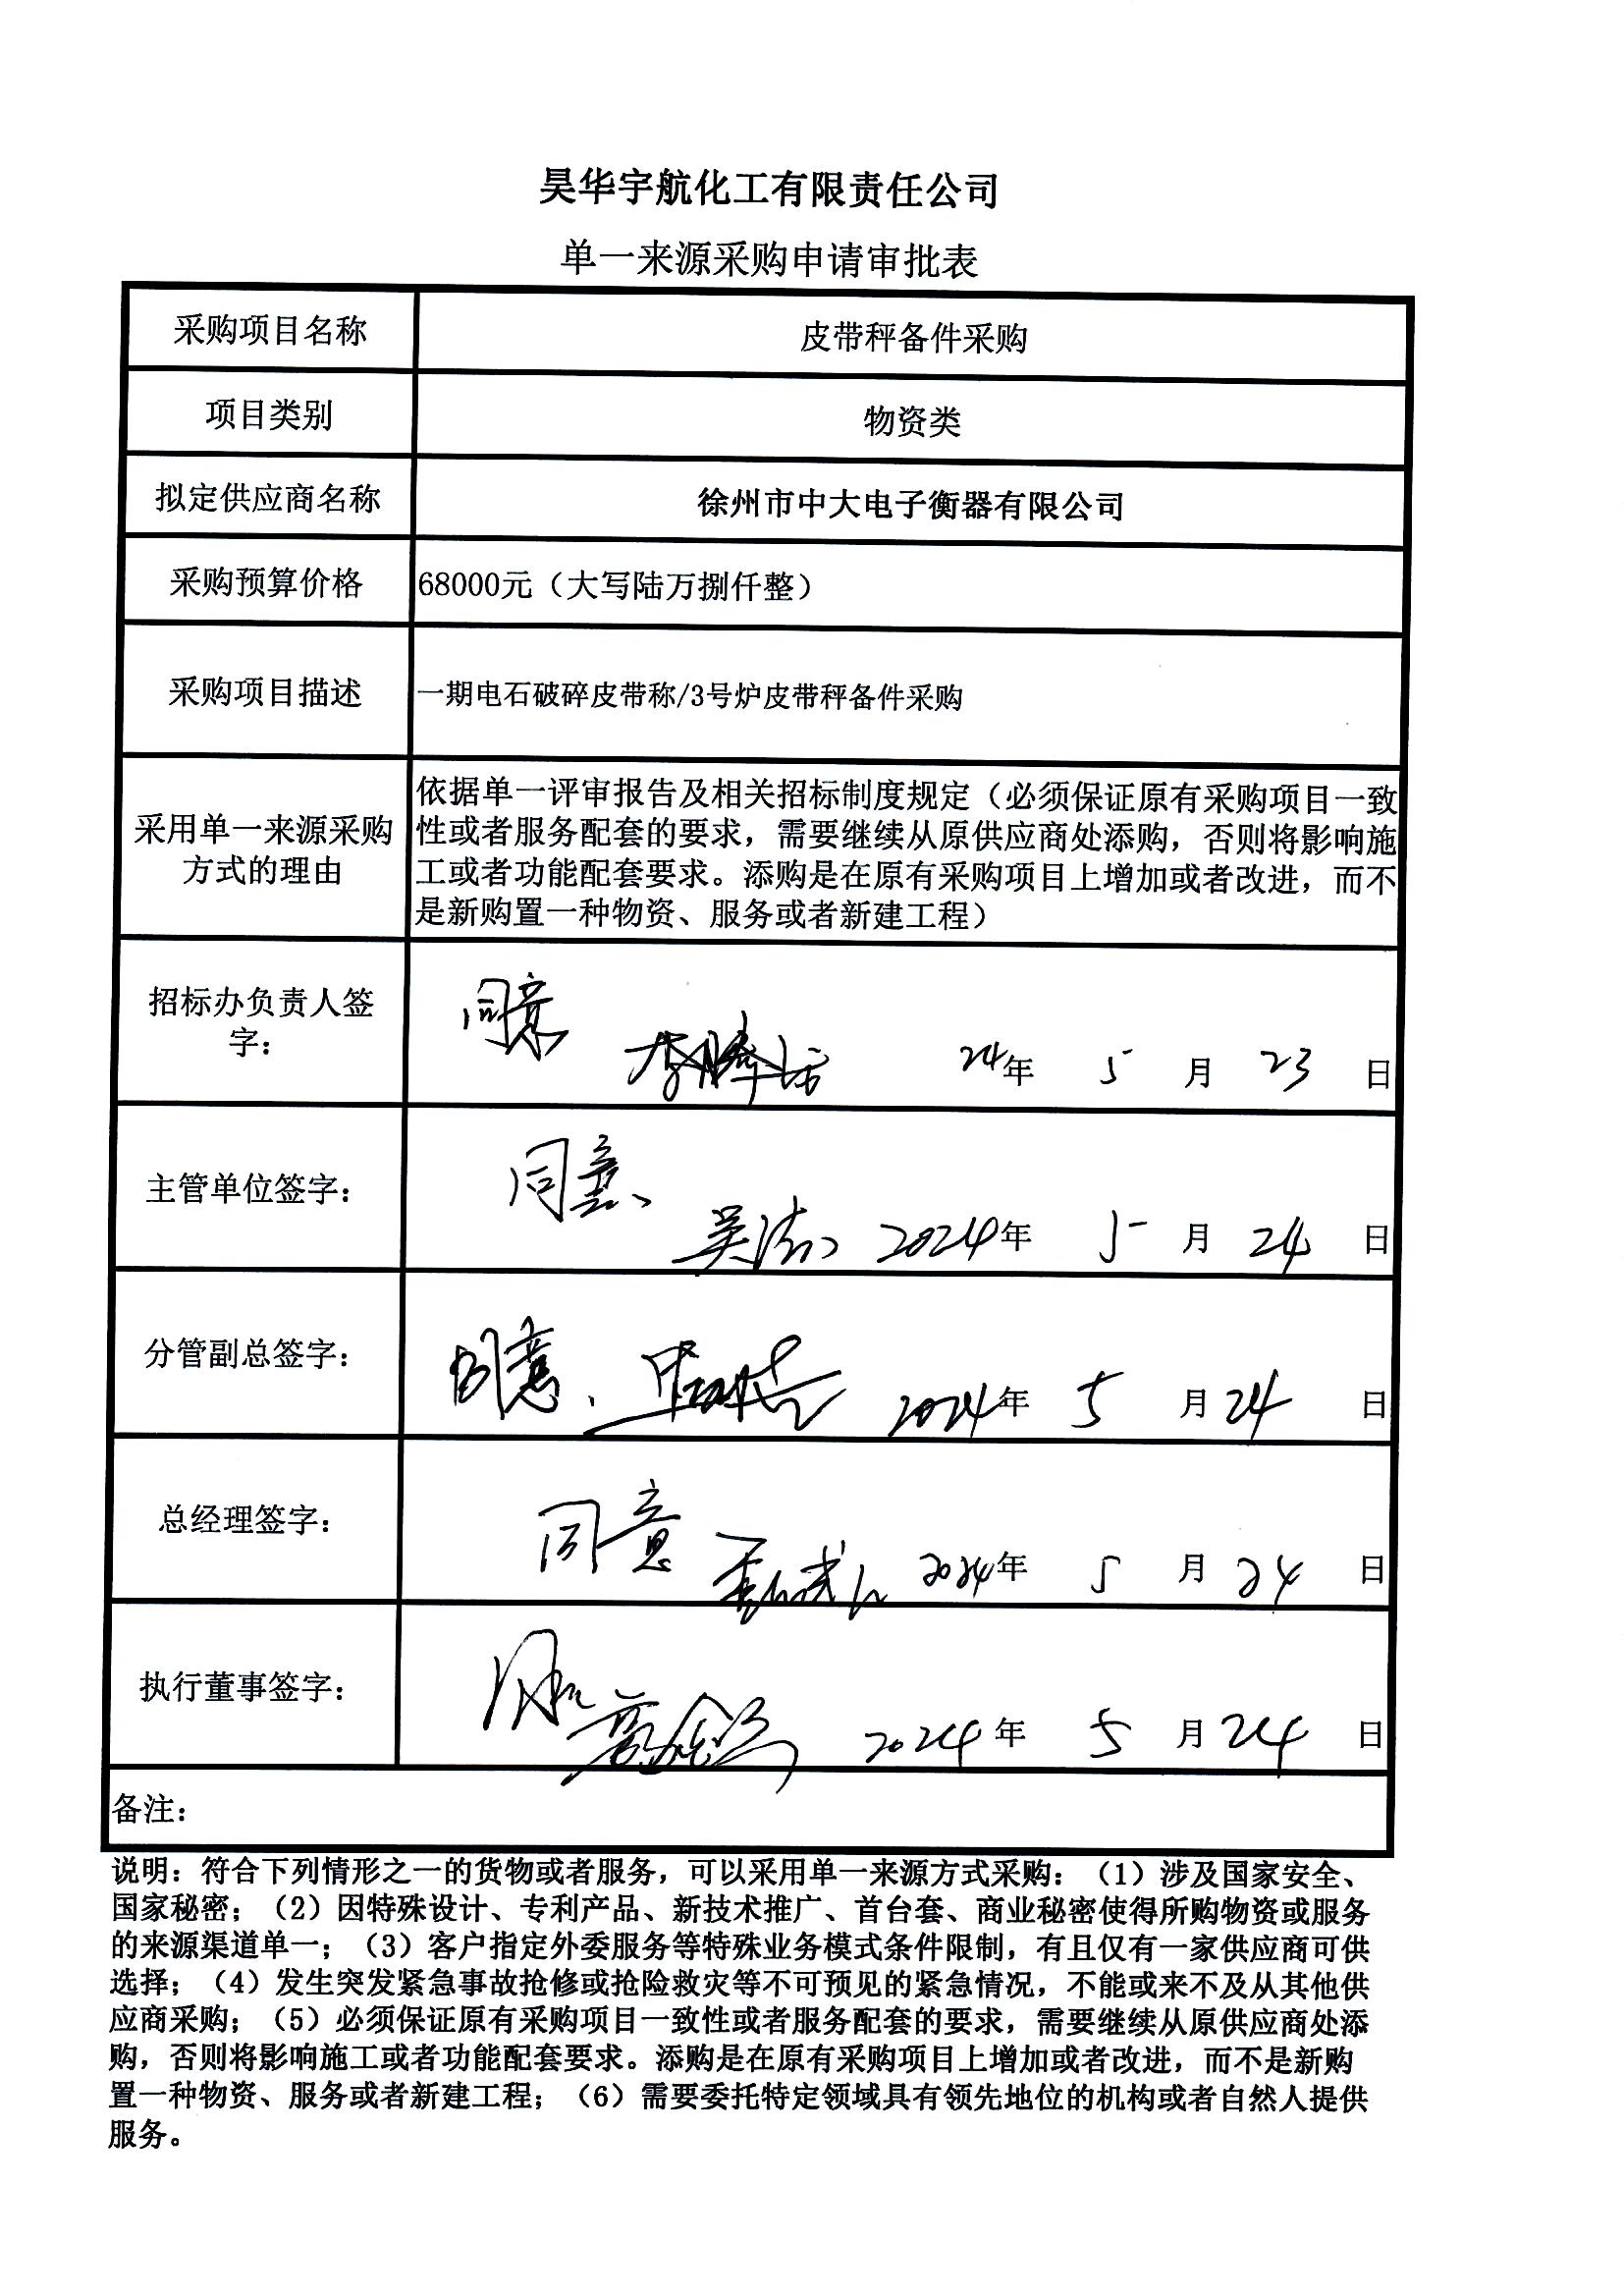 昊华宇航化工有限责任公司
单一来源采购申请审批表
采购项目名称
皮带秤备件采购
项目类别
物资类
拟定供应商名称
徐州市中大电子衡器有限公司
采购预算价格
68000元（大写陆万捌仟整）
采购项目描述
一期电石破碎皮带称/3号炉皮带秤备件采购
采用单一来源采购
方式的理由
依据单一评审报告及相关招标制度规定（必须保证原有采购项目一致
性或者服务配套的要求，需要继续从原供应商处添购，否则将影响施
工或者功能配套要求。添购是在原有采购项目上增加或者改进，而不
是新购置一种物资、服务或者新建工程）
招标办负责人签
字：
同意
24年 5 月 23 日
主管单位签字：
同意
2024年 5 月 24 日
分管副总签字：
同意
2024年 5 月 24 日
总经理签字：
同意
2024年 5 月 24 日
执行董事签字：
2024年 5 月 24 日
备注：
说明：符合下列情形之一的货物或者服务，可以采用单一来源方式采购：（1）涉及国家安全、
国家秘密；（2）因特殊设计、专利产品、新技术推广、首台套、商业秘密使得所购物资或服务
的来源渠道单一；（3）客户指定外委服务等特殊业务模式条件限制，有且仅有一家供应商可供
选择；（4）发生突发紧急事故抢修或抢险救灾等不可预见的紧急情况，不能或来不及从其他供
应商采购；（5）必须保证原有采购项目一致性或者服务配套的要求，需要继续从原供应商处添
购，否则将影响施工或者功能配套要求。添购是在原有采购项目上增加或者改进，而不是新购
置一种物资、服务或者新建工程；（6）需要委托特定领域具有领先地位的机构或者自然人提供
服务。